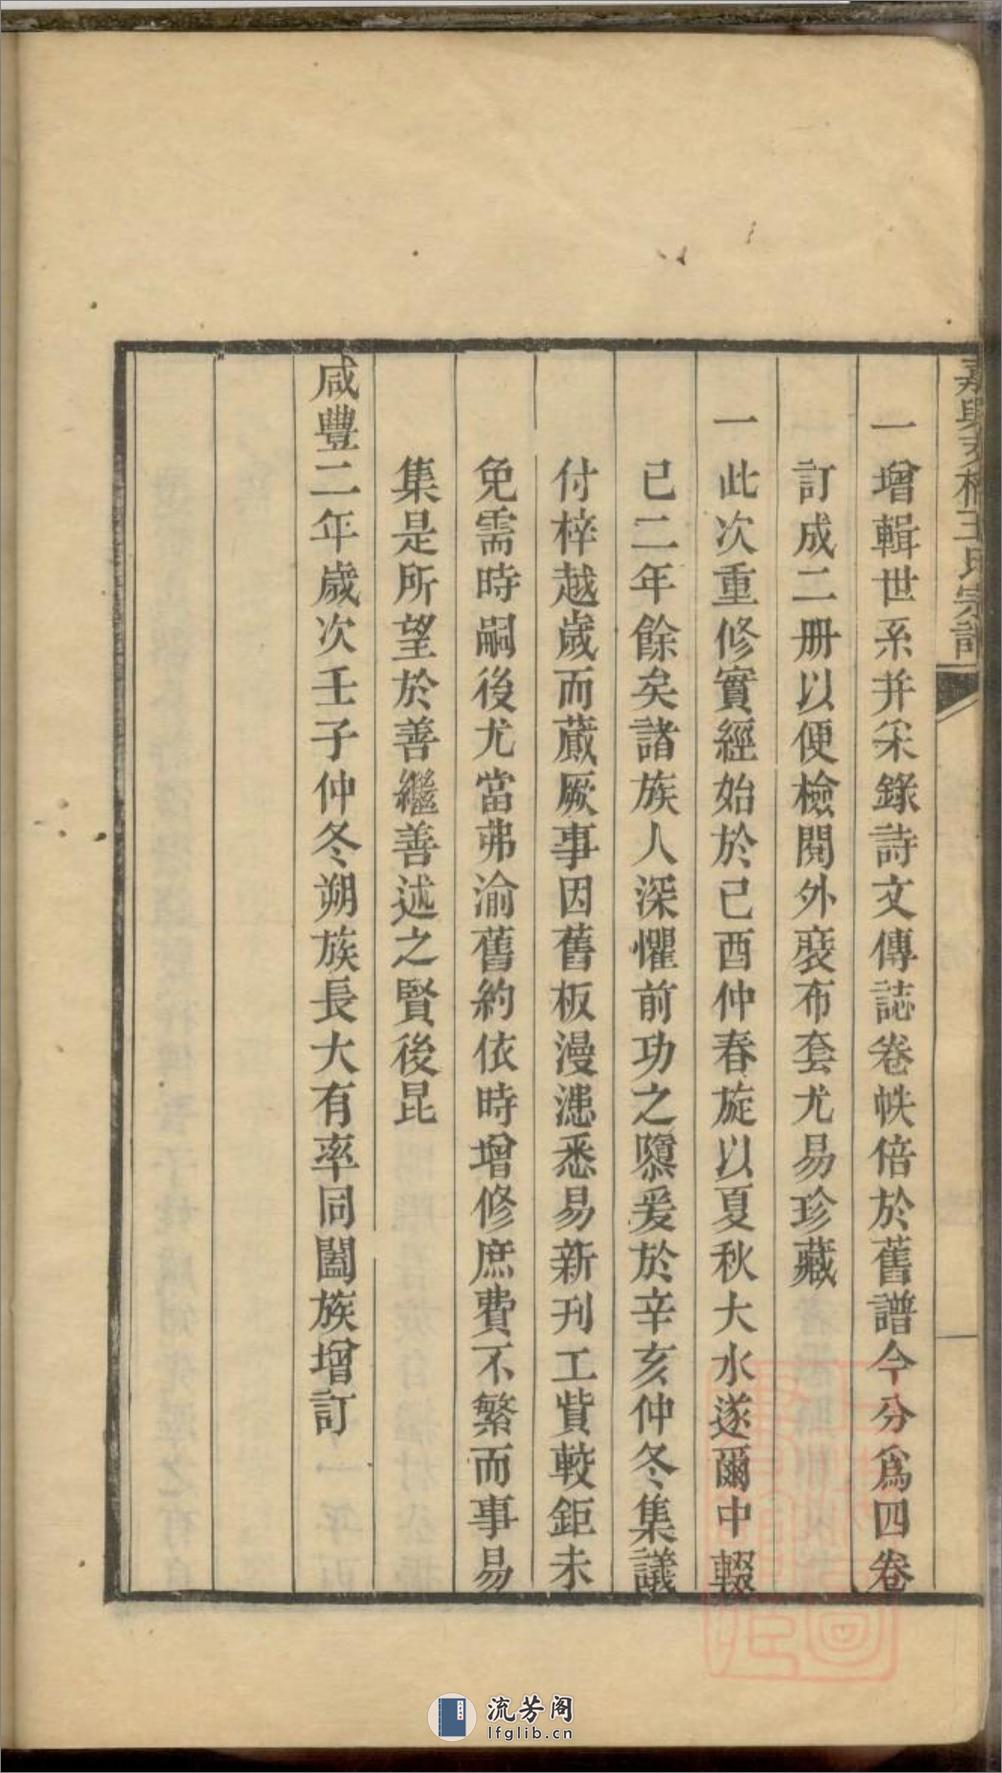 一增輯世系并采錄詩文傳誌卷帙倍於舊譜今分爲四卷
訂成二册以便檢閱外裝布套尤易珍藏
一此次重修實經始於己酉仲春旋以夏秋大水遂爾中輟
已二年餘矣諸族人深懼前功之隳爰於辛亥仲冬集議
付梓越歲而蕆厥事因舊板漫漶悉易新刊工貲較鉅未
免需時嗣後尤當弗渝舊約依時增修庶費不繁而事易
集是所望於善繼善述之賢後昆
咸豐二年歲次壬子仲冬朔族長大有率同闔族增訂
流芳阁
lfglib.cn